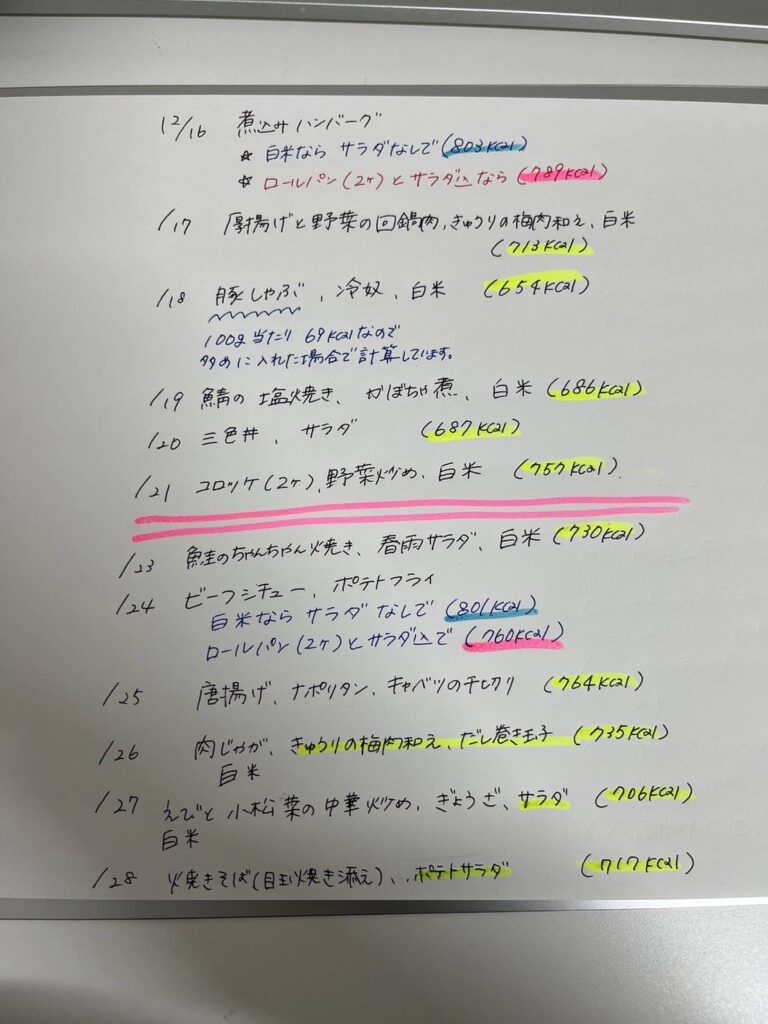 12/16 煮込みハンバーグ
☆ 白米なら サラダなしで (803kcal)
☆ ロールパン(2ヶ)とサラダ込なら (789kcal)
/17 厚揚げと野菜の回鍋肉、きゅうりの梅肉和え、白米
(713kcal)
/18 豚しゃぶ、冷奴、白米 (654kcal)
100g当たり 69kcalなので
多めに入れた場合で計算しています。
/19 鯖の塩焼き、かぼちゃ煮、白米 (686kcal)
/20 三色丼、サラダ (687kcal)
/21 コロッケ(2ヶ)、野菜炒め、白米 (757kcal)
/23 鮭のちゃんちゃん焼き、春雨サラダ、白米 (730kcal)
/24 ビーフシチュー、ポテトフライ
白米なら サラダなしで (801kcal)
ロールパン(2ヶ)とサラダ込で (760kcal)
/25 唐揚げ、ナポリタン、キャベツの千切り (764kcal)
/26 肉じゃが、きゅうりの梅肉和え、だし巻き玉子 (735kcal)
白米
/27 えびと小松菜の中華炒め、ぎょうざ、サラダ (706kcal)
白米
/28 焼きそば(目玉焼き添え)、ポテトサラダ (717kcal)